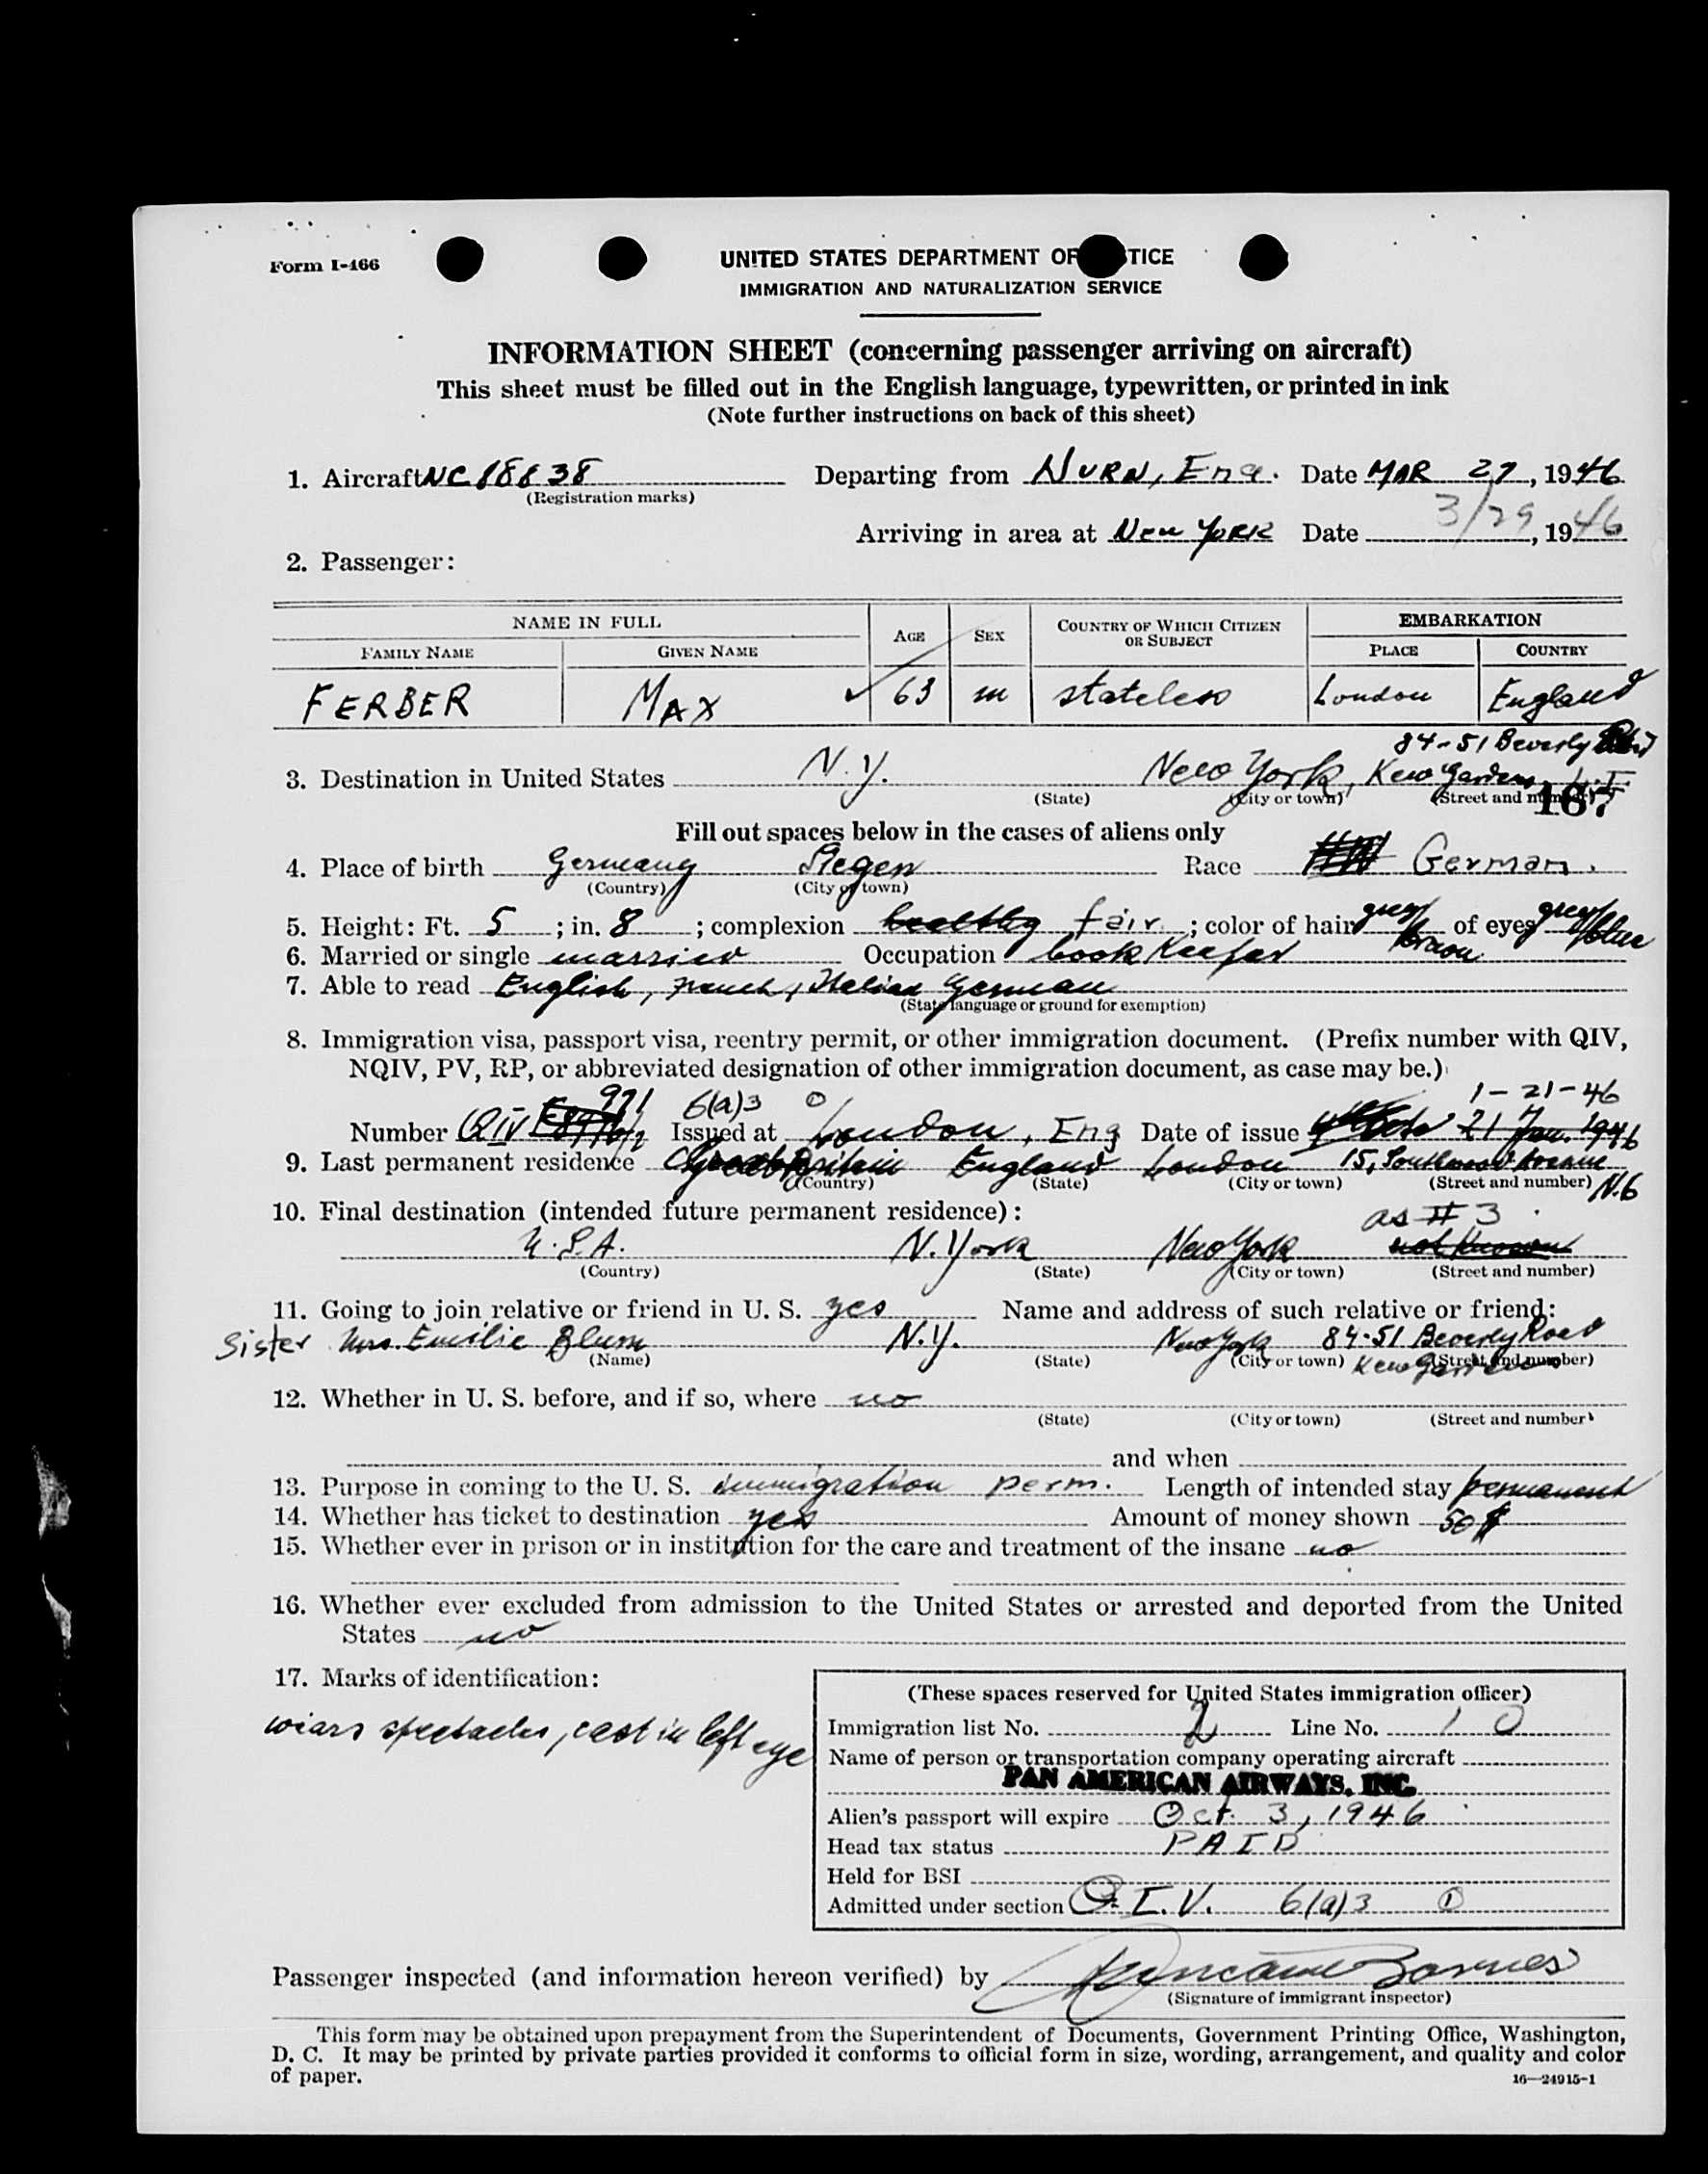 Form I-466
UNITED STATES DEPARTMENT OF TICE
IMMIGRATION AND NATURALIZATION SERVICE
INFORMATION SHEET (concerning passenger arriving on aircraft)
This sheet must be filled out in the English language, typewritten, or printed in ink
(Note further instructions on back of this sheet)
1. Aircraft NC 18838 Departing from HURN, Eng. Date MAR 27, 1946
(Registration marks)
3/29
Arriving in area at New York Date , 1946
2. Passenger:
NAME IN FULL AGE SEX COUNTRY OF WHICH CITIZEN OR SUBJECT EMBARKATION
FAMILY NAME GIVEN NAME PLACE COUNTRY
FERBER MAX ✓ 63 m stateless London England
84-51 Beverly
3. Destination in United States N.Y. New York, Kew Gardens, L.I.
(State) (City or town) (Street and number) 167
Fill out spaces below in the cases of aliens only
4. Place of birth Germany Siegen Race German.
(Country) (City or town)
5. Height: Ft. 5 ; in. 8 ; complexion healthy fair ; color of hair grey/brown of eyes grey/blue
6. Married or single married Occupation book keeper
7. Able to read English, French, Italian German
(State language or ground for exemption)
8. Immigration visa, passport visa, reentry permit, or other immigration document. (Prefix number with QIV,
NQIV, PV, RP, or abbreviated designation of other immigration document, as case may be.)
971 6(a)3 1-21-46
Number QIV Issued at London, Eng Date of issue 21 Jan. 1946
9. Last permanent residence Great Britain England London 15, Southwood Avenue
(Country) (State) (City or town) (Street and number) N.6
10. Final destination (intended future permanent residence): as # 3
U.S.A. N. York New York not known
(Country) (State) (City or town) (Street and number)
11. Going to join relative or friend in U. S. yes Name and address of such relative or friend:
Sister Mrs. Emilie Blum N.Y. New York 84-51 Beverly Road
(Name) (State) (City or town) Kew Gardens (Street and number)
12. Whether in U. S. before, and if so, where no
(State) (City or town) (Street and number)
and when
13. Purpose in coming to the U. S. immigration perm. Length of intended stay permanent
14. Whether has ticket to destination yes Amount of money shown 50 $
15. Whether ever in prison or in institution for the care and treatment of the insane no
16. Whether ever excluded from admission to the United States or arrested and deported from the United
States no
17. Marks of identification:
wears spectacles, cast in left eye
(These spaces reserved for United States immigration officer)
Immigration list No. 2 Line No. 10
Name of person or transportation company operating aircraft
PAN AMERICAN AIRWAYS, INC.
Alien's passport will expire Oct. 3, 1946
Head tax status PAID
Held for BSI
Admitted under section Q.I.V. 6(a)3 ①
Passenger inspected (and information hereon verified) by
(Signature of immigrant inspector)
This form may be obtained upon prepayment from the Superintendent of Documents, Government Printing Office, Washington,
D. C. It may be printed by private parties provided it conforms to official form in size, wording, arrangement, and quality and color
of paper.
16—24915-1